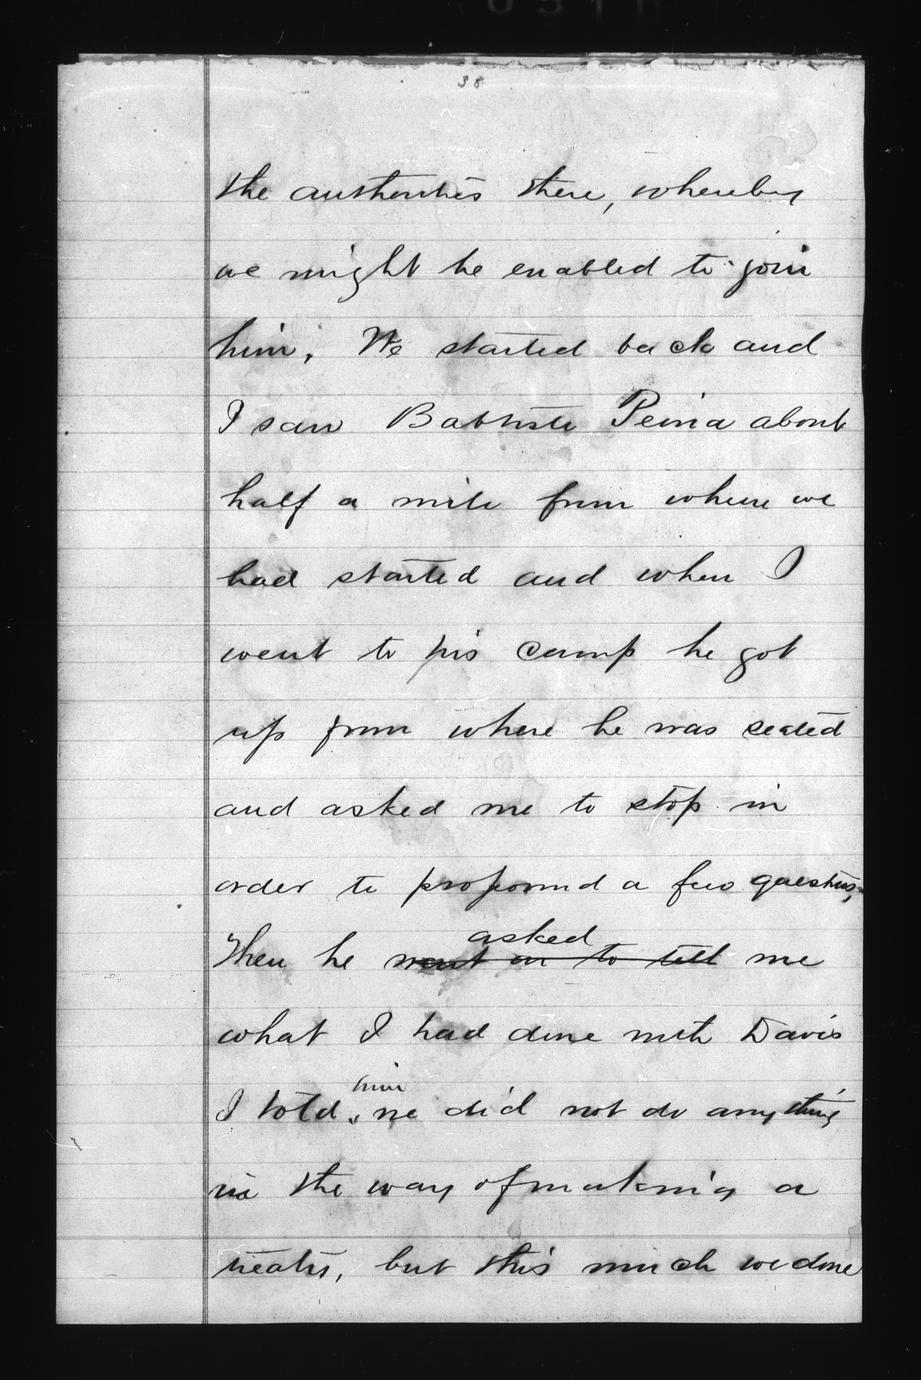 38
the authorities there, whereby
we might be enabled to join
him. We started back and
I saw Babtiste Peoria about
half a mile from where we
had started and when I
went to his camp he got
up from where he was seated
and asked me to stop in
order to propound a few questions,
asked
Then he went on to tell me
what I had done with Davis
him
I told, we did not do anything
in the way of making a
treaty, but this much we done